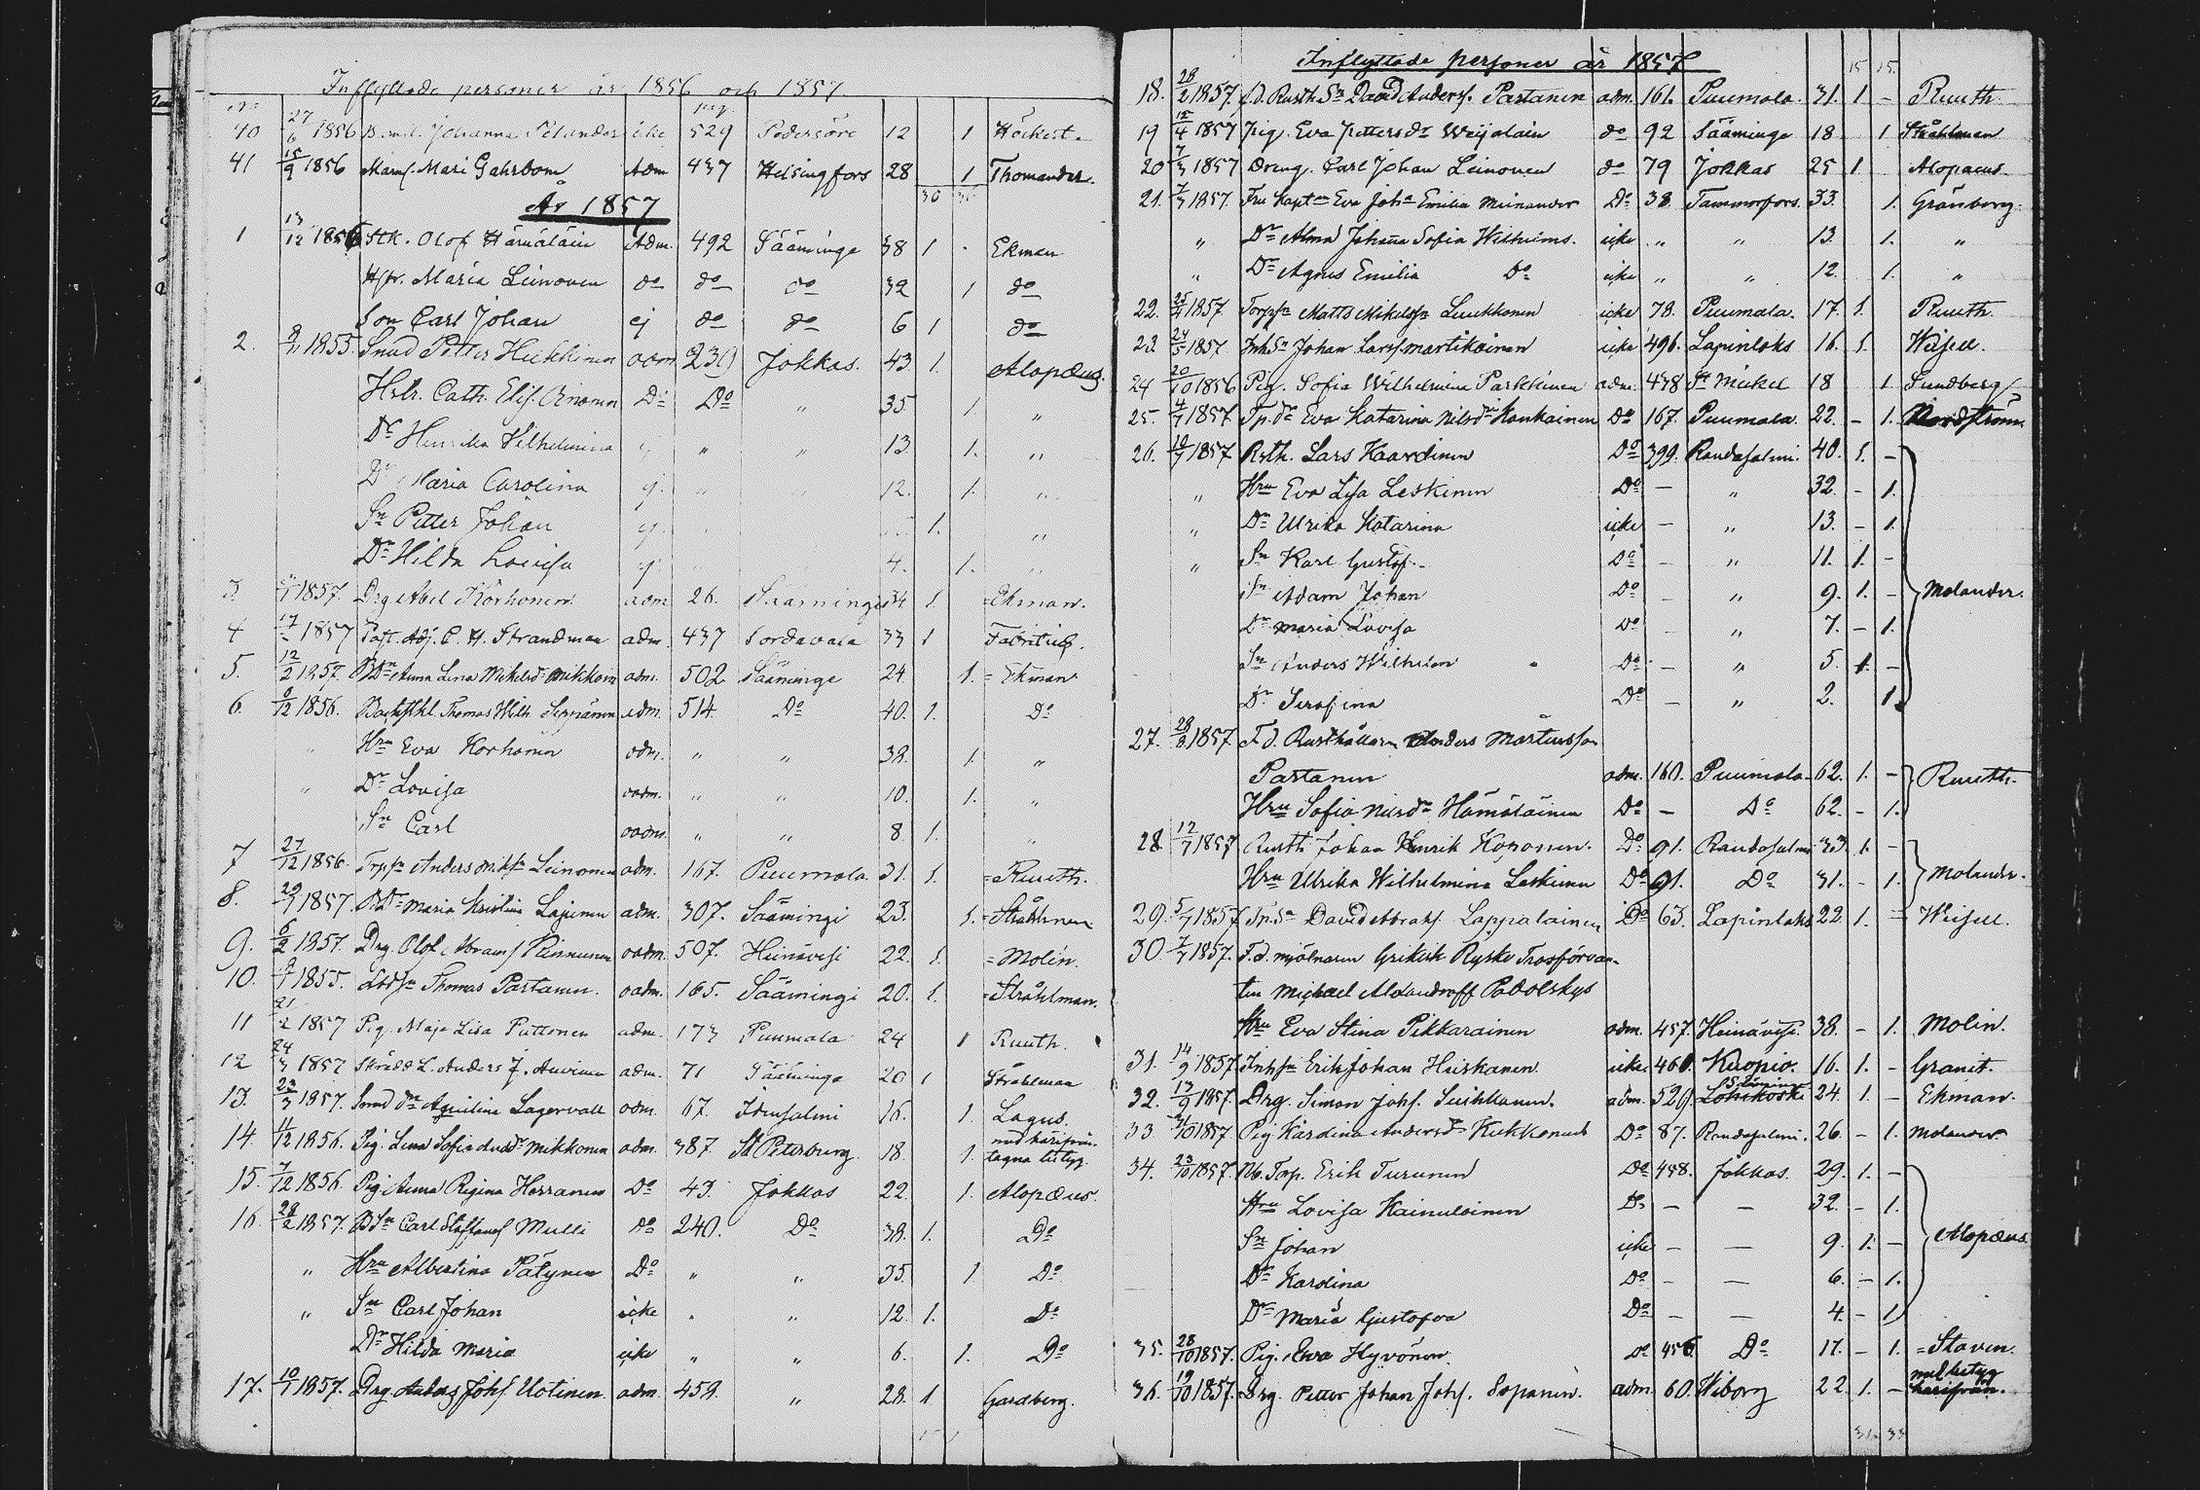 Inflyttade personer år 1856 och 1857
No pag.
40 27/6 1856 Johanna icke 529 Pedersöre 12 1 Höckert
41 15/9 1856 Mams. Mari Gahrbom Adm 437 Helsingfors 28 1 Thomander.
36 36
År 1857
1 13/12 1856 Stk. Olof Härmäläin Adm. 492 Sääminge 38 1 Ekman
Hstr. Maria Leinonen do do do 32 1 do
Son Carl Johan ej do do 6 1 do
2. 1855. Smed Petter Hukkinen oadm 230 Jokkas. 43. 1. Alopæus.
Hstr. Cath. Elis. Do Do " 35 1 "
Dr Wilhelmina " " 13. 1. "
Dr Maria Carolina ej. " " 12. 1. "
Sn Petter Johan ej. 1. "
Dr Hilda Lovisa ej 4. 1. "
3. 1857. Drg Abel Körhonen adm 26. Saamingi 34 1. =Ekman.
4 17 1857 Past. Adj. C. H. Strandman adm. 437 Sordavala 33 1 Fabritius.
5. 12/2 1857. Anna Lena Mikelsdr Mikkoin adm. 502 Sääminge 24 1. =Ekman
6. 8/12 1856. Thomas Wilh. Seppänen adm. 514. Do 40. 1. Do
" Hru Eva Korhonen adm. " " 38. 1. "
" Dr Lovisa oadm. " " 10. 1. "
Sn Carl oadm. " " 8. 1. "
7 27/12 1856. Anders Leinonen adm. 167. Puumala 31. 1. =Ruuth.
8. 29 1857. Maria Kristina Lajunen adm. 307. Säämingi 23. 1. =Stråhlman
9. 6/2 1857. Drg. Olof Abramss. Pennanen oadm. 507. Heinävesi 22. 1. =Molin.
10. 1855. Thomas Partanen. oadm. 165. Säämingi 20. 1. =Stråhlman.
11 21/2 1857 Pig. Maja Lisa Puttonen adm. 173 Puumala 24 1 Ruuth.
12 24/3 1857 Skrädd L. Anders J. Auvinen adm. 71 Sääminge 20 1 Stråhlman
13. 23/3 1857. Smed dr Aqvilina Lagervall adm. 67. Idensalmi 16. 1. Lagus.
14. 11/12 1856. Pig. Lena Sofia Andsdr Mikkonen adm. 387. St Petersburg 18. 1. med härifrån tagna betyg.
15. 7/12 1856. Pig. Anna Regina Horranen Do 43. Jokkas 22. 1. Alopæus.
16. 28/2 1857. BSn Carl Staffanss Mulli Do 240. Do 38. 1. Do
" Hru Albertina Pätynen Do " " 35. 1 Do
" Sn Carl Johan icke " " 12. 1. Do
Dr Hilda Maria icke " " 6. 1. Do
17. 10/1 1857. Drg Anders Johs. Uotinen. adm. 459. " 28. 1 Gardberg.
Inflyttade personer år 1857
15 15.
18. 28/2 1857. f.d. Rusth. Sn David Anders. Partanen adm. 161. Puumala. 31. 1 – Ruuth.
19 15/4 1857 Pig. Eva Pettersdr Weijalain do 92 Sääminge 18 1 Stråhlman
20 7/3 1857 Dreng. Carl Johan Leinonen do 79 Jokkas 25 1 Alopaeus.
21. 7/3 1857. Fru Kapt:en Eva Joha Emilia Meinander Do 38. Tammerfors. 33. 1. Grönberg.
" Dr Alma Johana Sofia Wilhelms. icke " " 13. 1. "
" Dr Agnes Emilia Do icke " " 12. 1. "
22. 25/4 1857 Matts Mikelss. Luukkonen icke 78. Puumala. 17. 1. Ruuth.
23. 24/5 1857 Inh.Sn Johan Larss. Martikainen icke 496. Lapinlaks 16. 1. Weisell.
24 20/10 1856 Pig. Sofia Wilhelmina Parkkinen adm. 478 St Mickel 18 1 Sundberg
25. 4/7 1857. Tp.dr Eva Katarina Nilsdr Kankainen Do 167. Puumala. 22. – 1. Nordström
26. 10/7 1857 Rsth. Lars Kaardinen Do 399. Randasalmi. 40. 1. –
" Hru Eva Lisa Leskinen Do – " 32. – 1.
" Dr Ulrika Katarina icke – " 13. – 1.
" Sn Karl Gustaf. Do – " 11. 1. –
Sn Adam Johan Do – " 9. 1. – Molander.
Dr Maria Lovisa Do – " 7. – 1.
Sn Anders Wilhelm Do – " 5. 1. –
Dr Serafina Do – " 2. 1.
27. 28/8 1857 F.d. Rusthållaren Anders Mårtensson
Partanen adm. 160. Puumala 62. 1. – Ruuth.
Hru Sofia Nilsdr Hämäläinen Do – Do 62. – 1.
28. 12/7 1857 Rusth Johan Henrik Koponen. Do 91. Randasalmi 33. 1. –
Hru Ulrika Wilhelmina Leskinen Do 91. Do 31. – 1. Molander.
29. 5/7 1857 David Abrahs. Lappalainen Do 63. Lapinlaks 22. 1. – Weisell.
30. 7/7 1857. F.d. mjölnaren Grikisk Ryske Trosförvan-
ten Michael Alexandroff Padolskys
Hru Eva Stina Pikkarainen adm. 457. Heinävesi. 38. – 1. Molin.
31. 14/9 1857. Inhsn Erik Johan Hiiskanen icke 460. Kuopio. 16. 1. – Granit.
32. 13/9 1857. Drg. Simon Johs. Suihkonen. adm. 520. Sääminge 24. 1. – Ekman.
33 1857 Pig Kardina Andersdr Kukkonen Do 87. Randasalmi. 26. – 1. Molander.
34. 23/10 1857. Torp. Erik Turunen Do 458. Jokkas. 29. 1. –
Hru Lovisa Kainulainen Do – – 32. – 1.
Sn Johan icke – – 9. 1. – Alopæus
Dr Kardina Do – – 6. – 1.
Dr Maria Gustafva Do – – 4. – 1.
35. 28/10 1857. Pig. Ewa Hyvönen. Do 456 Do 17. – 1. =Staven.
36. 19/10 1857. Drg. Petter Johan Johs. Soparin. adm. 60. Wiborg 22. 1. – med betyg härifrån.
31 33